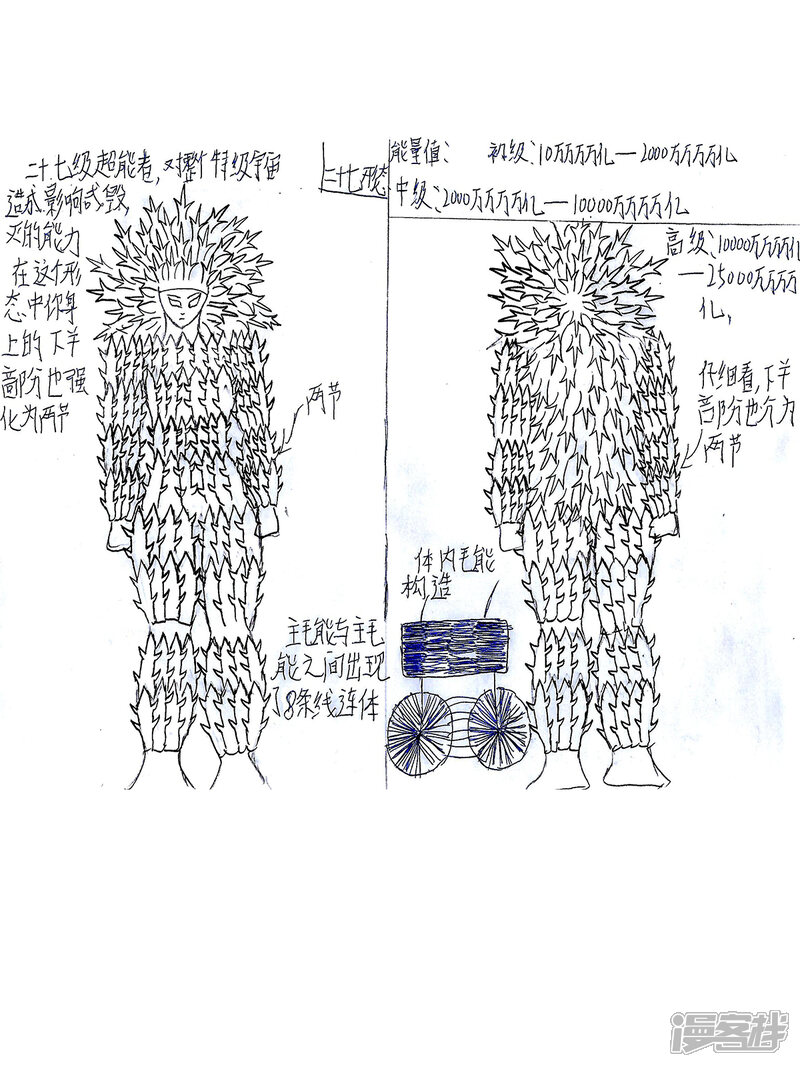 二十七级超能者,对整个特级宇宙
造成影响或毁
灭的能力
在这个形
态中你身
上的下半
部分也强
化为两节
二十七形态
两节
主毛能与主毛
能之间出现
了8条线连体
能量值: 初级:10万万万亿—2000万万万亿
中级:2000万万万亿—10000万万万亿
高级:10000万万万亿
—25000万万万
亿,
仔细看,下半
部分也分为
两节
体内毛能
构造
漫客栈